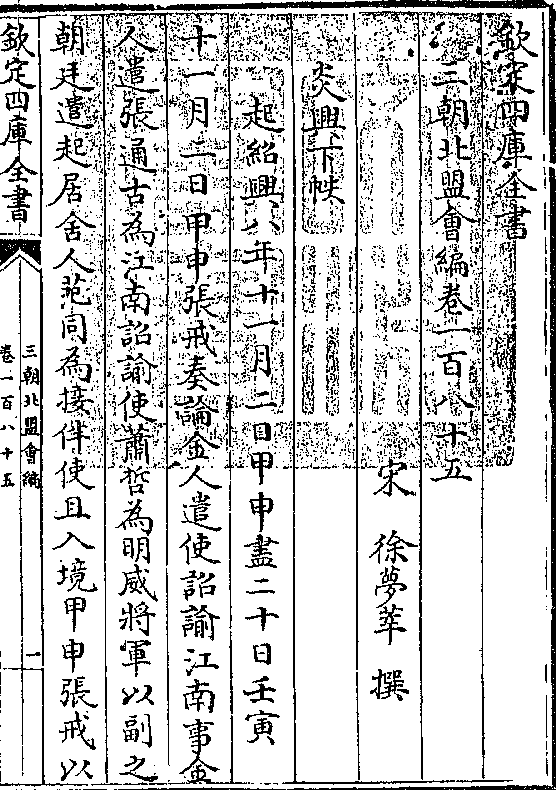 欽定四庫全書
三朝北盟會編卷一百八十五
宋 徐夢莘 撰
炎興下帙
起紹興八年十一月二日甲申盡二十日壬寅
十一月二日甲申張戒奏論金人遣使詔諭江南事金
人遣張通古為江南詔諭使蕭哲為明威將軍以副之
朝廷遣起居舍人范同為接伴使且入境甲申張戒以
欽定四庫全書
三朝北盟會編
卷一百八十五
一